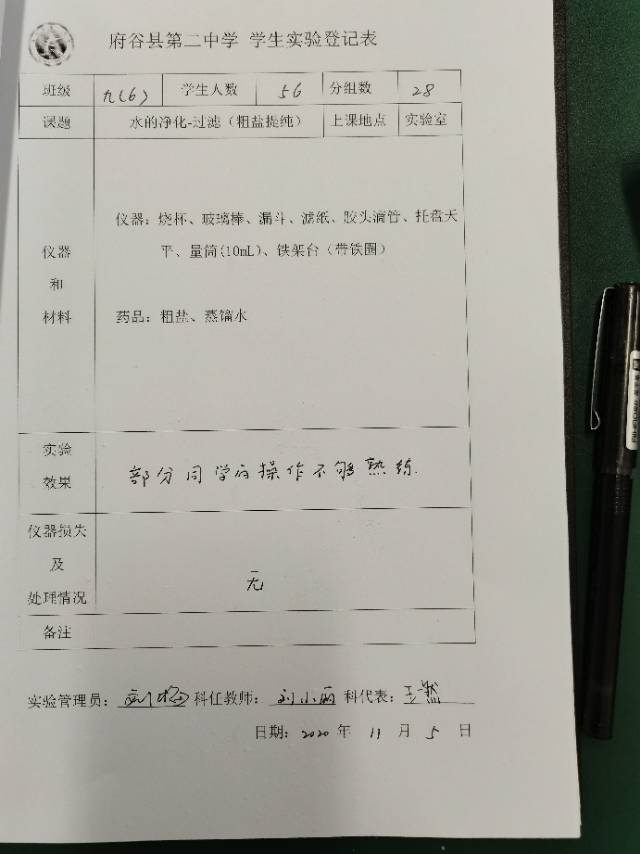 府谷县第二中学 学生实验登记表
班级 九(6) 学生人数 56 分组数 28
课题 水的净化-过滤（粗盐提纯） 上课地点 实验室
仪器和材料
仪器：烧杯、玻璃棒、漏斗、滤纸、胶头滴管、托盘天
平、量筒(10mL)、铁架台（带铁圈）
药品：粗盐、蒸馏水
实验效果 部分同学的操作不够熟练.
仪器损失及处理情况 无
备注
实验管理员： 科任教师：刘小丽 科代表：
日期：2020 年 11 月 5 日